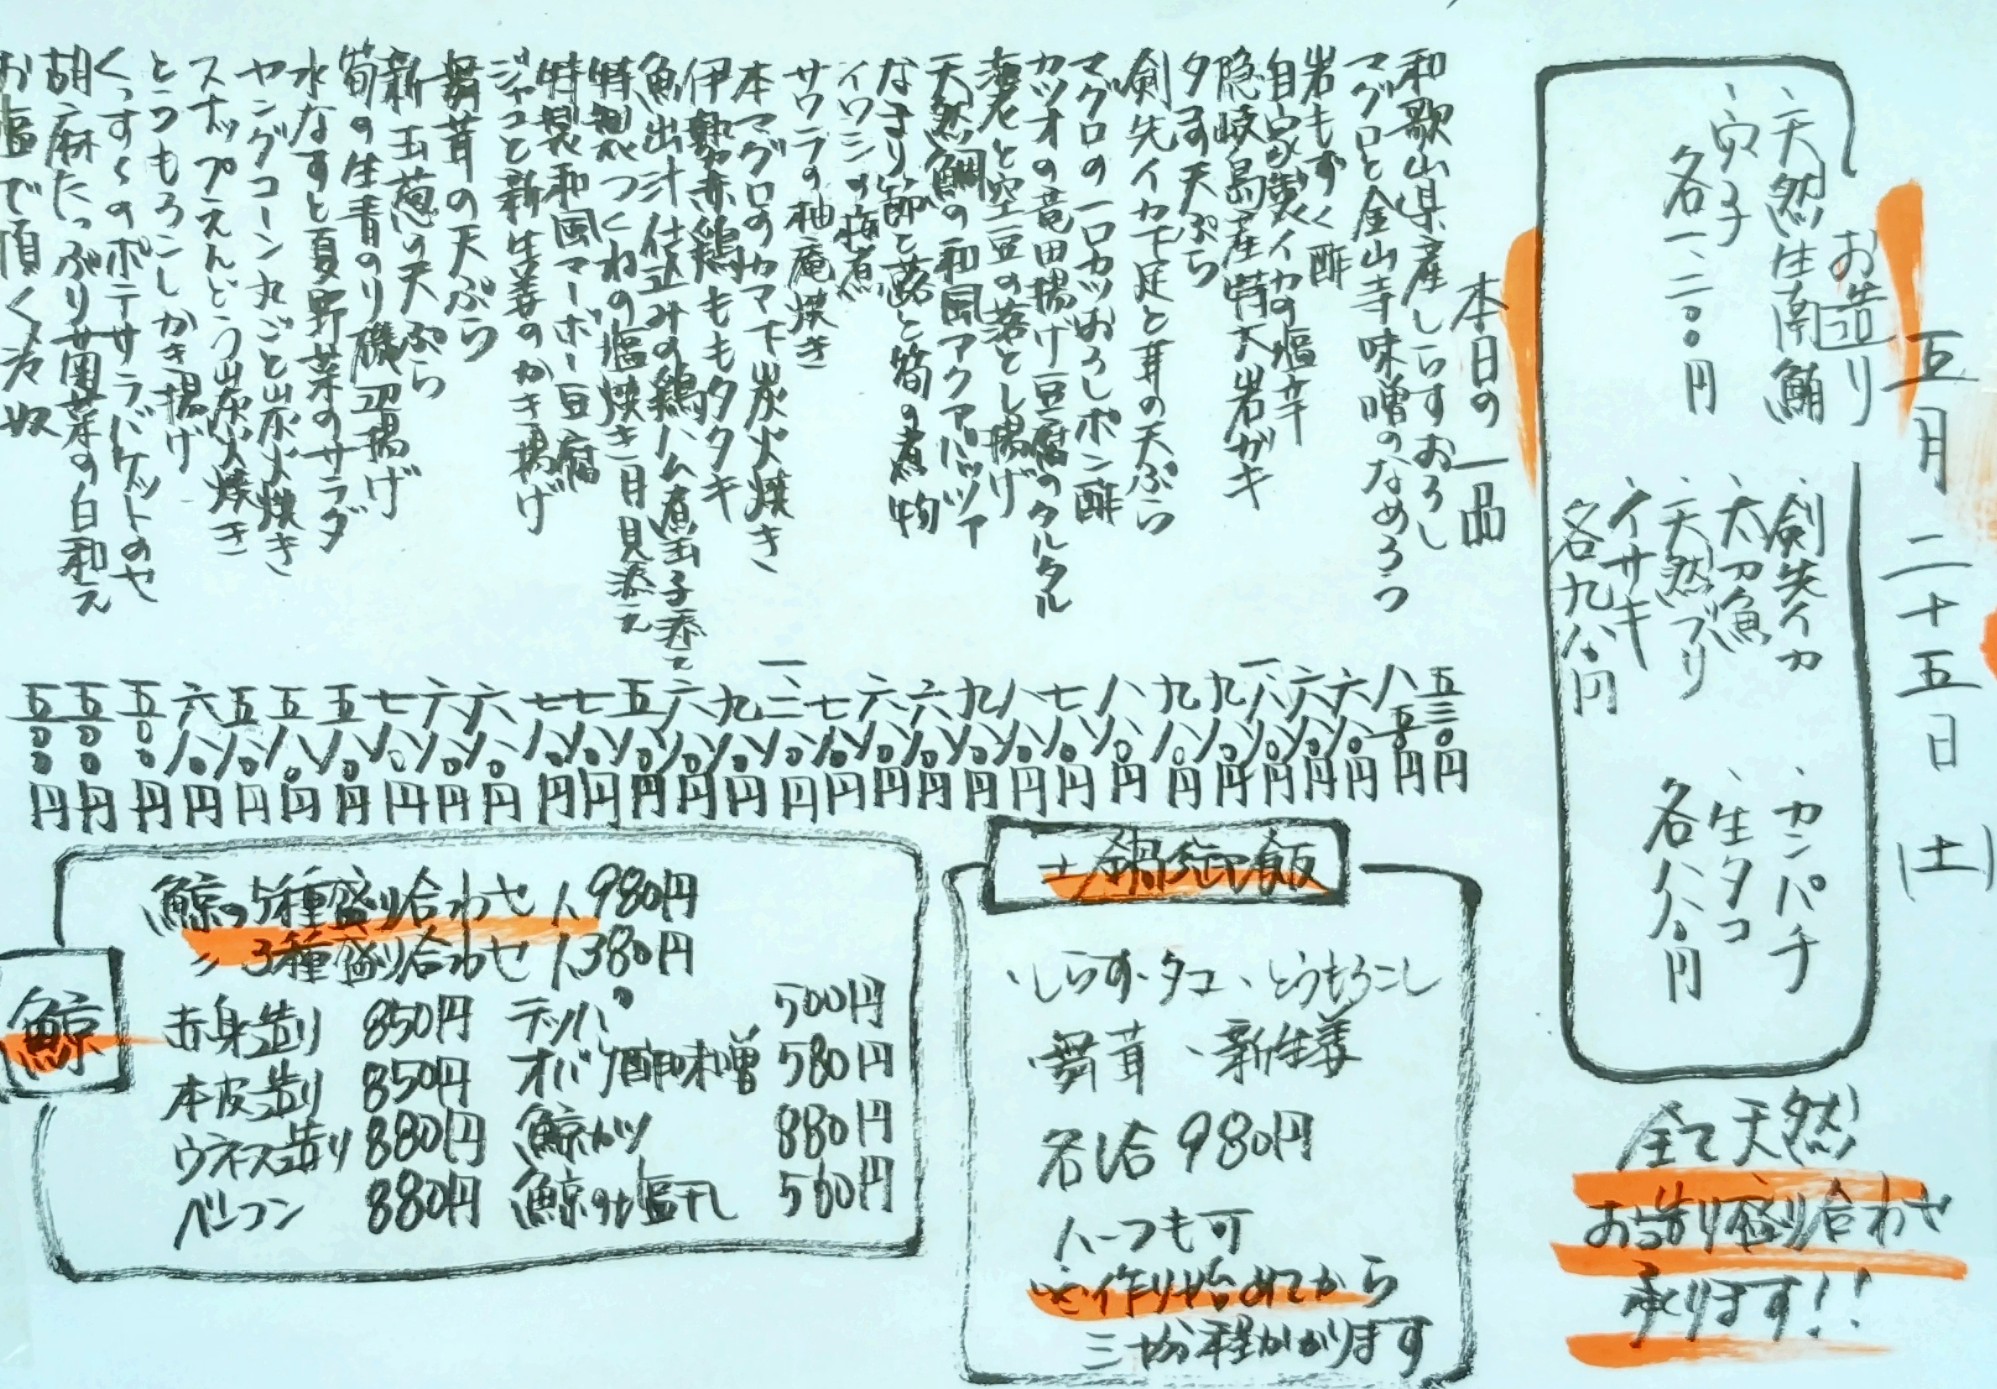 五月二十五日(土)
お造り
、天然生南鮪
、穴子
各一、二〇〇円
、剣先イカ
、太刀魚
、天然ブリ
、イサキ
各九八〇円
、カンパチ
、生タコ
各八八〇円
全て天然
お造り盛り合わせ
承ります!!
本日の一品
和歌山県産しらすおろし 五三〇円
マグロと金山寺味噌のなめろう 八五〇円
岩もずく酢 六八〇円
自家製イカの塩辛 六八〇円
隠岐島産特大岩ガキ
タコ天ぷら 九八〇円
剣先イカ下足と茸の天ぷら 九八〇円
マグロの一口カツおろしポン酢 八八〇円
カツオの竜田揚げ豆腐のタルタル 七八〇円
海老と空豆の落とし揚げ 八八〇円
天然鯛の和風アクアパッツァ 九八〇円
なまり節と蕗と筍の煮物 六八〇円
イワシの梅煮 六八〇円
サワラの柚庵焼き 七八〇円
本マグロのカマ下炭火焼き
伊勢赤鶏ももタタキ 九八〇円
魚出汁仕込みの鶏ハム煮玉子添え 六八〇円
特製つくねの塩焼き月見添え 五八〇円
特製和風マーボー豆腐 七八〇円
ジャコと新生姜のかき揚げ 七八〇円
舞茸の天ぷら 六八〇円
新玉葱の天ぷら 六八〇円
筍の生青のり磯辺揚げ 七八〇円
水なすと夏野菜のサラダ 五八〇円
ヤングコーン丸ごと炭火焼き 五八〇円
スナップえんどう炭火焼き 五八〇円
とうもろこしかき揚げ 六八〇円
のポテサラバゲットのせ 五〇〇円
胡麻たっぷり菊菜の白和え 五〇〇円
お塩で頂く冷奴 五〇〇円
土鍋御飯
・しらす・タコ・とうもろこし
・舞茸・新生姜
各1合 980円
ハーフも可
作り始めてから
三十分程かかります
鯨
鯨の5種盛り合わせ 1,980円
〃 3種盛り合わせ 1,380円
赤身造り 850円 テッパ 500円
本皮造り 850円 オバケ酢味噌 580円
ウネス造り 880円 鯨カツ 880円
ベーコン 880円 鯨の塩干し 560円